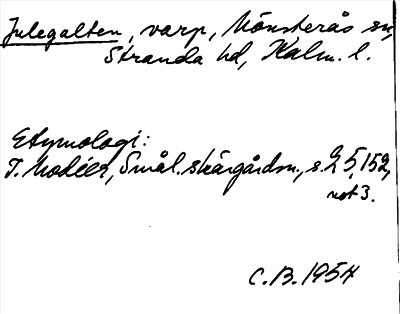 Julegalten, varp, Mönsterås sn,
Stranda hd, Kalm. l.
Etymologi:
I. Modéer, Smål. skärgårdsn., s. 25, 152,
not 3.
C.B. 1954